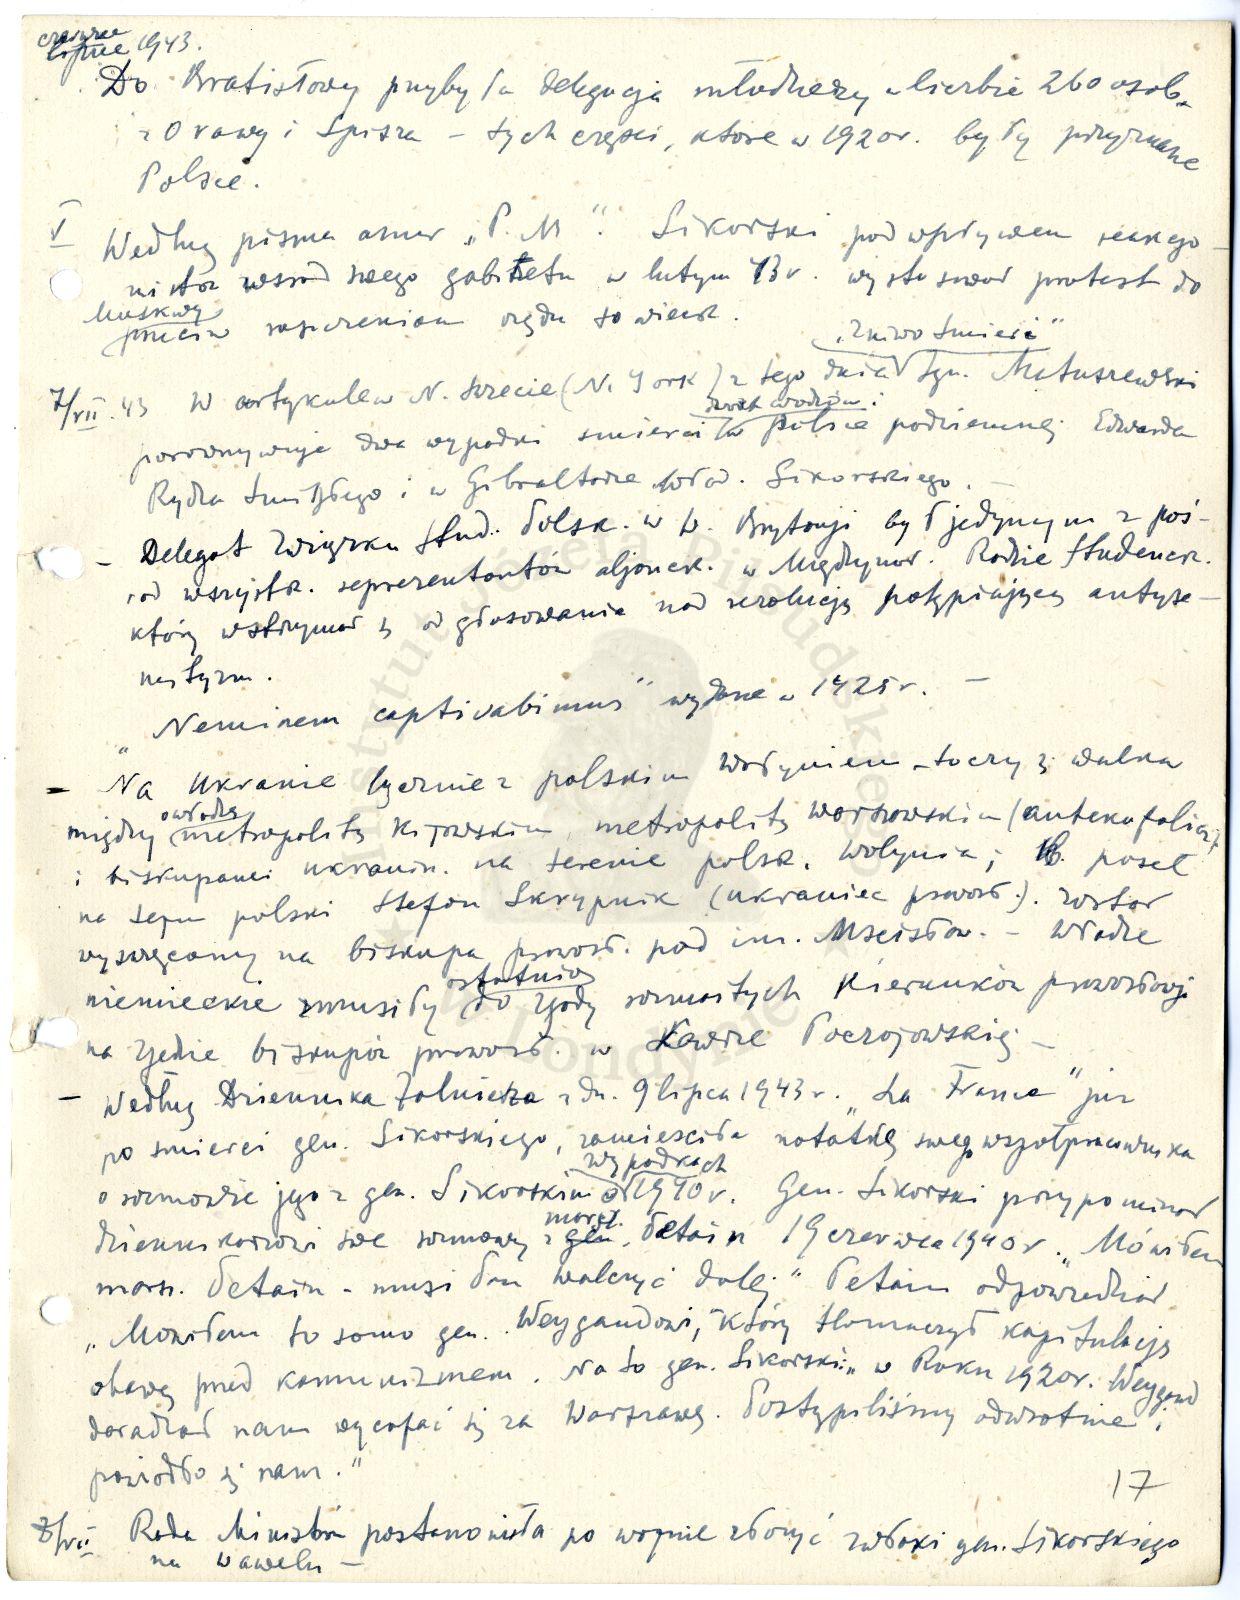 czerwiec
lipiec 1943.
Do Bratisławy przybyła delegacja młodzieży w liczbie 260 osób,
z Orawy i Spisza – tych części, które w 1920 r. były przyznane
Polsce.
V Według pisma amer. „P. M": Sikorski pod wpływem reakcjo-
nistów wśród swego gabinetu w lutym 43 r. wystosował protest do
Moskwy
przeciw roszczeniom rządu sowieck.
„Żniwo śmierci"
7/VII.43 W artykule w N. Świecie (N. York) z tego dnia Ign. Matuszewski
dwóch wodzów:
porównywuje dwa wypadki śmierci w Polsce podziemnej Edwarda
Rydza Śmigłego i w Gibraltarze Wład. Sikorskiego. –
– Delegat Związku Stud. Polsk. w W. Brytanji był jedynym z poś-
ród wszystk. reprezentantów aljanck. w Międzynar. Radzie Studenck.
który wstrzymał się od głosowania nad rezolucją potępiającą antyse-
mityzm.
„Neminem captivabimus" wydane w 1425 r. –
– Na Ukrainie łącznie z polskim Wołyniem – toczy się walka
o władzę
między metropolitą Kijowskim, metropolitą warszawskim (autokefalicz.)
i biskupami ukraiń. na terenie polsk. Wołynia; b. poseł
na sejm polski Stefan Skrypnik (ukrainiec prawosł.). został
wyświęcony na biskupa prawosł. pod im. Mścisław. – Władze
ostatnio
niemieckie zmusiły do zgody rozmaitych kierunków prawosławji
na zjeździe biskupów prawosł. w Ławrze Poczajowskiej –
– Według Dziennika Żołnierza z dn. 9 lipca 1943 r. „La France" już
po śmierci gen. Sikorskiego, zamieściła notatkę swego współpracownika
wypadkach
o rozmowie jego z gen. Sikorskim o 1940 r. Gen. Sikorski przypominał
marsz.
dziennikarzowi swe rozmowy z gen. Petain 19 czerwca 1940 r. „Mówiłem
marsz. Petain – musi Pan walczyć dalej" Petain odpowiedział
„Mówiłem to samo gen. Weygandowi, który tłomaczył kapitulację
obawą przed komunizmem. Na to gen. Sikorski: „w Roku 1920 r. Weygand
doradzał nam wycofać się za Warszawę. Postąpiliśmy odwrotnie i
powiodło się nam."
17
8/VII Rada Ministrów postanowiła po wojnie złożyć zwłoki gen. Sikorskiego
na Wawelu –
Instytut Józefa Piłsudskiego
w Londynie